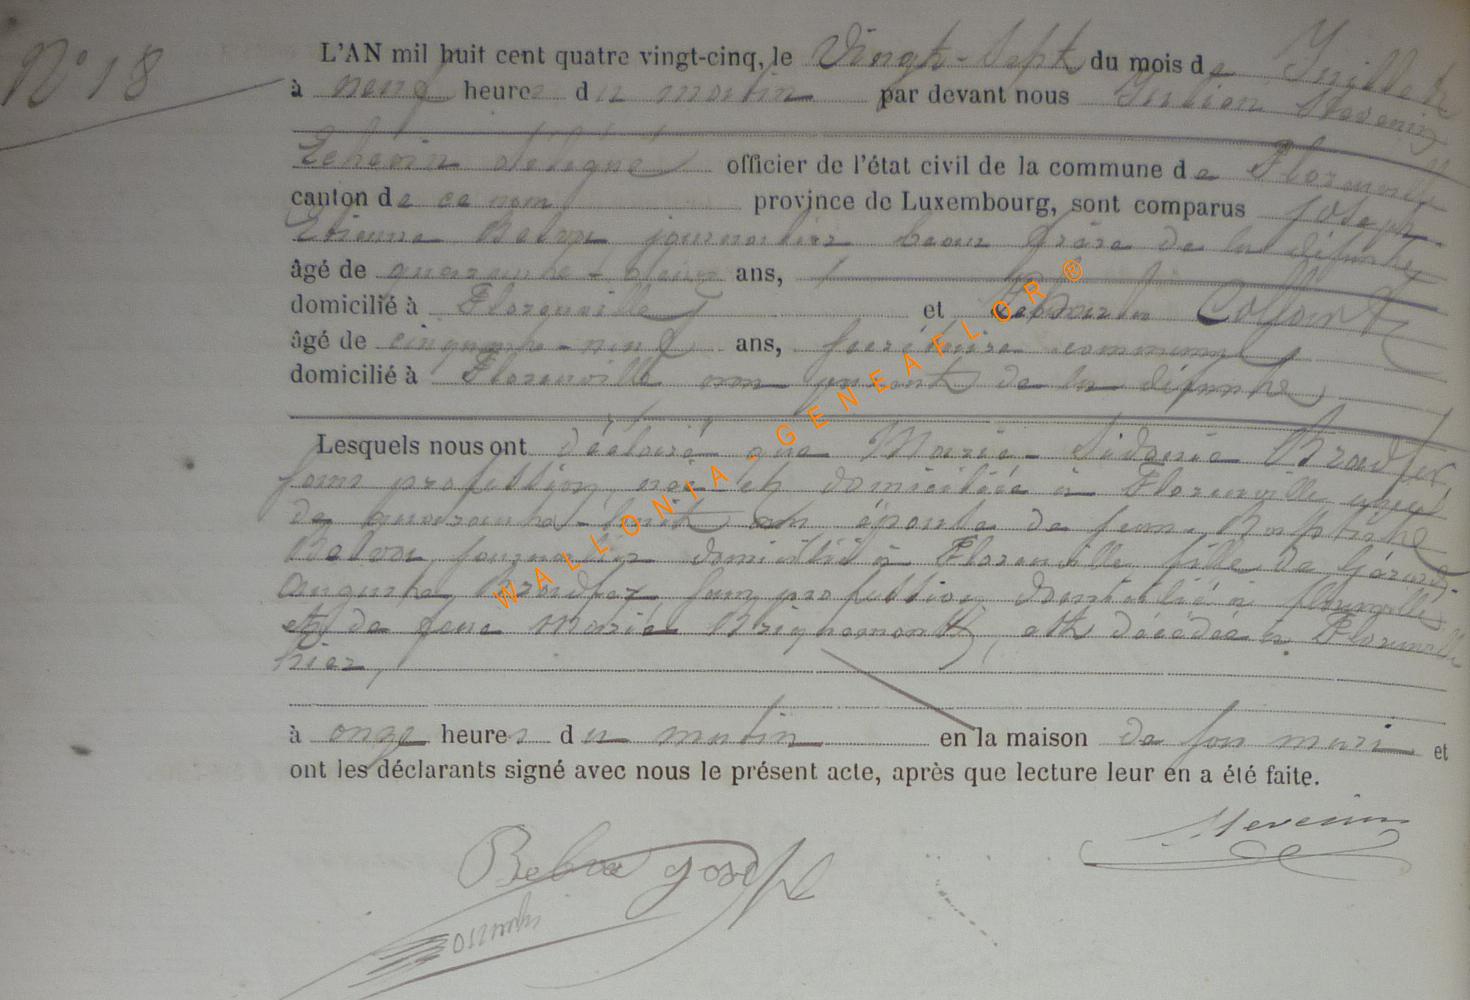 N° 18
L'AN mil huit cent quatre vingt-cinq, le Vingt-Sept du mois de Juillet
à neuf heures du matin par devant nous Julien Stevenin
Echevin délégué officier de l'état civil de la commune de Florenville
canton de ce nom province de Luxembourg, sont comparus Joseph
Etienne journalier beau frère de la défunte,
âgé de quarante-deux ans,
domicilié à Florenville et Collart
âgé de cinquante-neuf ans, secrétaire communal
domicilié à Florenville non parent de la défunte,
Lesquels nous ont déclaré que Marie-Sidonie Bradfer,
sans profession, née et domiciliée à Florenville agée
de quarante-huit an épouse de Jean-Baptiste
journalier domicilié à Florenville fille de Gérard-
Auguste Bradfer sans profession domicilié à Florenville
et de feue Marie est décédée à Florenville
hier,
à onze heures du matin en la maison de son mari et
ont les déclarants signé avec nous le présent acte, après que lecture leur en a été faite.
Stevenin
Joseph
WALLONIA - GENEAFLOR ®